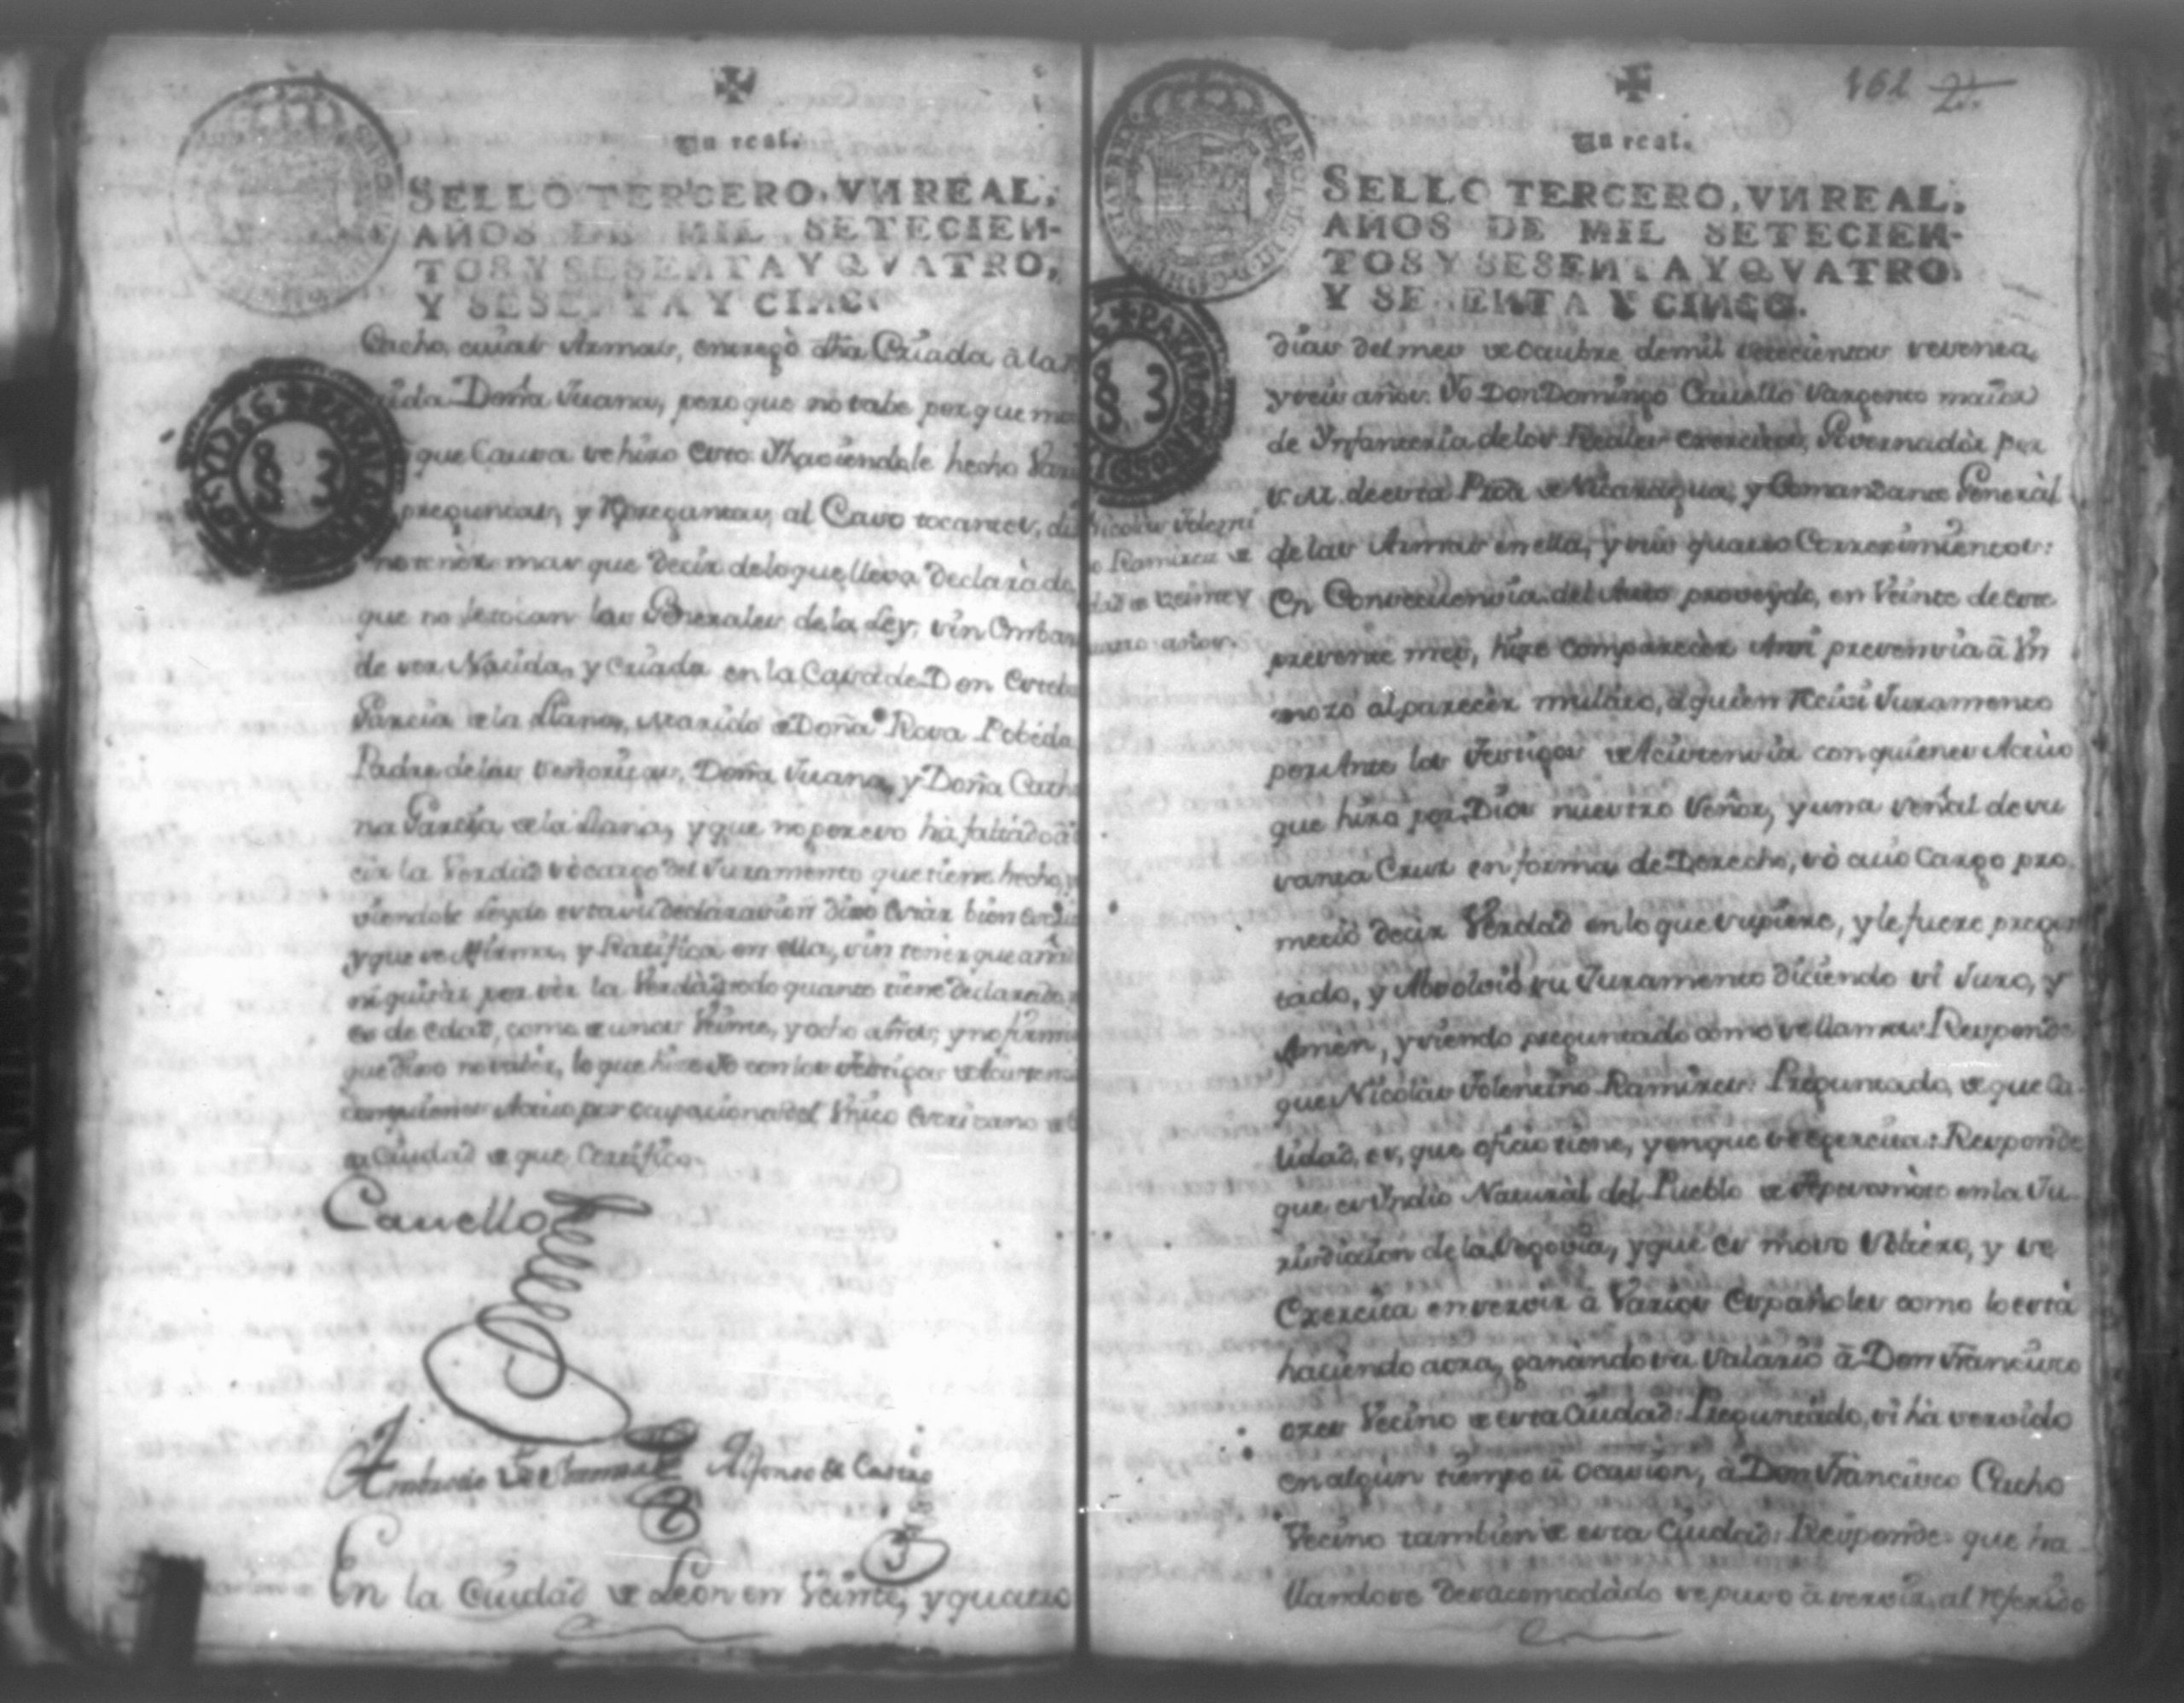 Un real.
SELLO TERCERO, VN REAL,
AÑOS DE MIL SETECIEN-
TOS Y SESENTA Y QVATRO,
Y SESENTA Y CINCO
Cacho, cuias Armas, entregò dha Criada â la
Doña Juana, pero que no sabe por que
que Causa se hizo esto. Y haciendole hecho
preguntas, y Repreguntas, al Caso tocantes,
no tenèr mas que decir de lo que lleva declaràdo,
que no le tocan las Generales de la Ley, sin
de ser Nacida, y criada en la Casa de Don
Garcia de la Llana, Marido de Doña Rosa Pobéda
Padre de las Señoritas, Doña Juana, y Doña
na Garcia de la Llana, y que no por eso hà faltado â
cir la Verdàd sò cargo del Juramento que tiene hecho,
viendole leydo esta su declaracion dixo estàr bien
y que se Afirma, y Ratifica en ella, sin tenèr que
ni quitàr por sèr la Verdàd todo quanto tiene declarado,
es de edad, como de unos Veinte, y ocho años, y no
que dixo no sabèr, lo que hize Yo con los testigos de
conquienes Actuo por ocupaciones del Unico Escrivano de
ta Ciudad de que Certifico.
Cauello
Alfonso de Castro
En la Ciudad de Leon en Veinte, y quatro
161
Un real.
SELLO TERCERO, VN REAL,
AÑOS DE MIL SETECIEN-
TOS Y SESENTA Y QVATRO,
Y SESENTA Y CINCO.
Nicolas Tolenti
o Ramires de
edad de veinte y
quatro años.
dias del mes de Octubre de mil setecientos sesenta,
y seis años. Yo Don Domingo Cauello Sargento maior
de Ynfanteria de los Reales exercitos, Governadòr por
S. M. de esta Proa de Nicaragua, y Comandante Generàl
de las Armas en ella, y sus quatro Corregimientos:
En Consecuencia del Auto proveydo, en Veinte de este
presente mes, hize comparecèr Ami presencia â Un
mozo al parecèr muláto, a quien Recivi Juramento
por Ante los Testigos de Acistencia con quienes Actuo
que hizo por Dios nuestro Señor, y una señal de su
santa Cruz en forma de Derecho, sò cuio Cargo pro
metiò decir Verdad en lo que supiere, y le fuere pregun
tado, y Absolviò su Juramento diciendo si Juro, y
Amen, y siendo preguntado como se llama: Responde
que Nicolas Tolentino Ramires: Preguntado, de que Ca
lidad, es, que oficio tiene, y en que se egercita: Responde
que es Yndio Naturàl del Pueblo de en la Ju
risdicion de la Segovia, y que es mozo Soltero, y se
Exercita en servir â Varios Españoles como lo està
haciendo aora, ganàndo su Salario â Don Francisco
ores Vecino de esta Ciudad: Preguntàdo, si hà servido
en algun tiempo û ocacion, à Don Francisco Cacho
Vecino tambien de esta Ciudad: Responde: que ha
llandose desacomodàdo se puso â servir, al referido